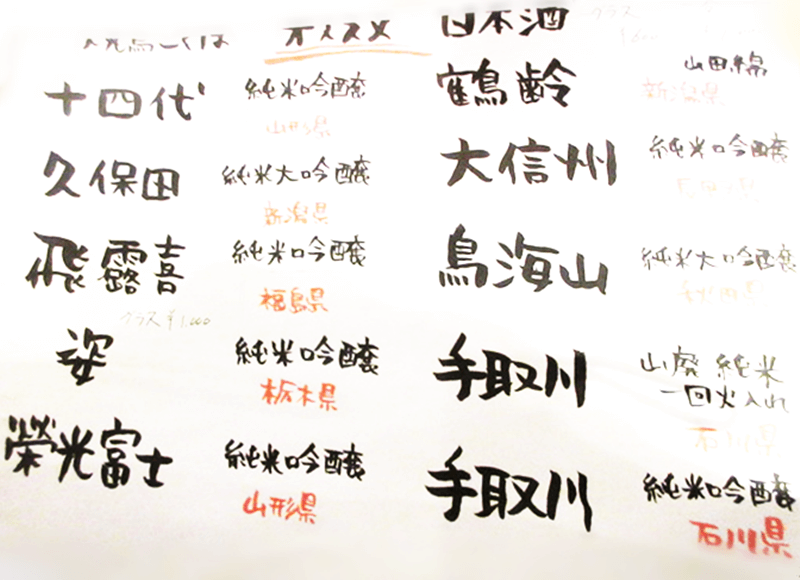 オススメ 日本酒
十四代 純米吟醸
山形県
久保田 純米大吟醸
新潟県
飛露喜 純米吟醸
福島県
グラス ¥1,000
姿 純米吟醸
栃木県
榮光富士 純米吟醸
山形県
グラス
鶴齢 山田錦
新潟県
大信州 純米吟醸
長野県
鳥海山 純米大吟醸
秋田県
手取川 山廃 純米
一回火入れ
石川県
手取川 純米吟醸
石川県